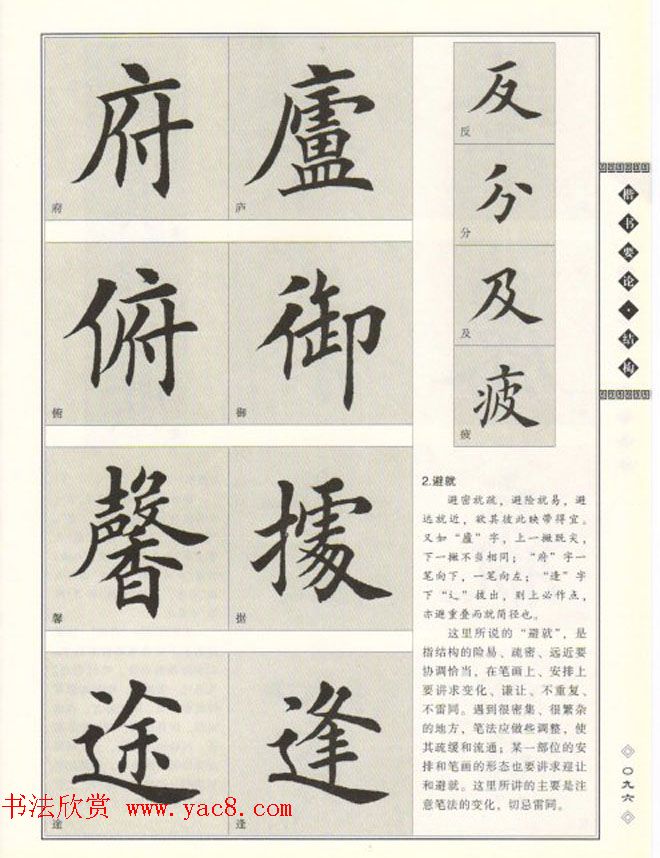 府
府
廬
庐
俯
俯
御
御
馨
馨
據
据
途
途
逢
逢
反
反
分
分
及
及
疲
疲
2.避就
避密就疏，避险就易，避
远就近，欲其彼此映带得宜。
又如“廬”字，上一撇既尖，
下一撇不当相同；“府”字一
笔向下，一笔向左；“逢”字
下“辶”拔出，则上必作点，
亦避重叠而就简径也。
这里所说的“避就”，是
指结构的险易、疏密、远近要
协调恰当，在笔画上、安排上
要讲求变化、谦让、不重复、
不雷同。遇到很密集、很繁杂
的地方，笔法应做些调整，使
其疏缓和流通；某一部位的安
排和笔画的形态也要讲求迎让
和避就。这里所讲的主要是注
意笔法的变化，切忌雷同。
楷书要论·结构
〇九六
书法欣赏 www.yac8.com